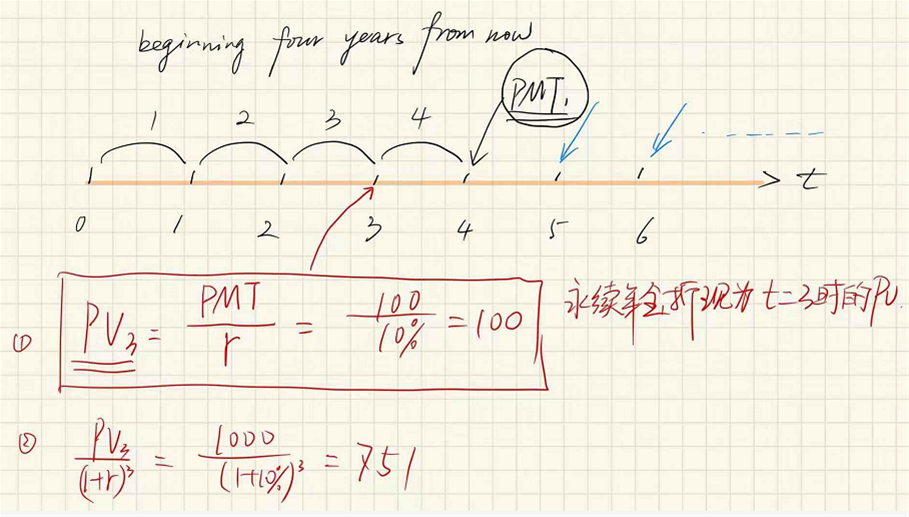 beginning four years from now
PMT₁
1 2 3 4
t
0 1 2 3 4 5 6
① PV₃ = PMT / r = 100 / 10% = 100
永续年金折现为 t=3时的PV.
② PV₃ / (1+r)³ = 1000 / (1+10%)³ = 751